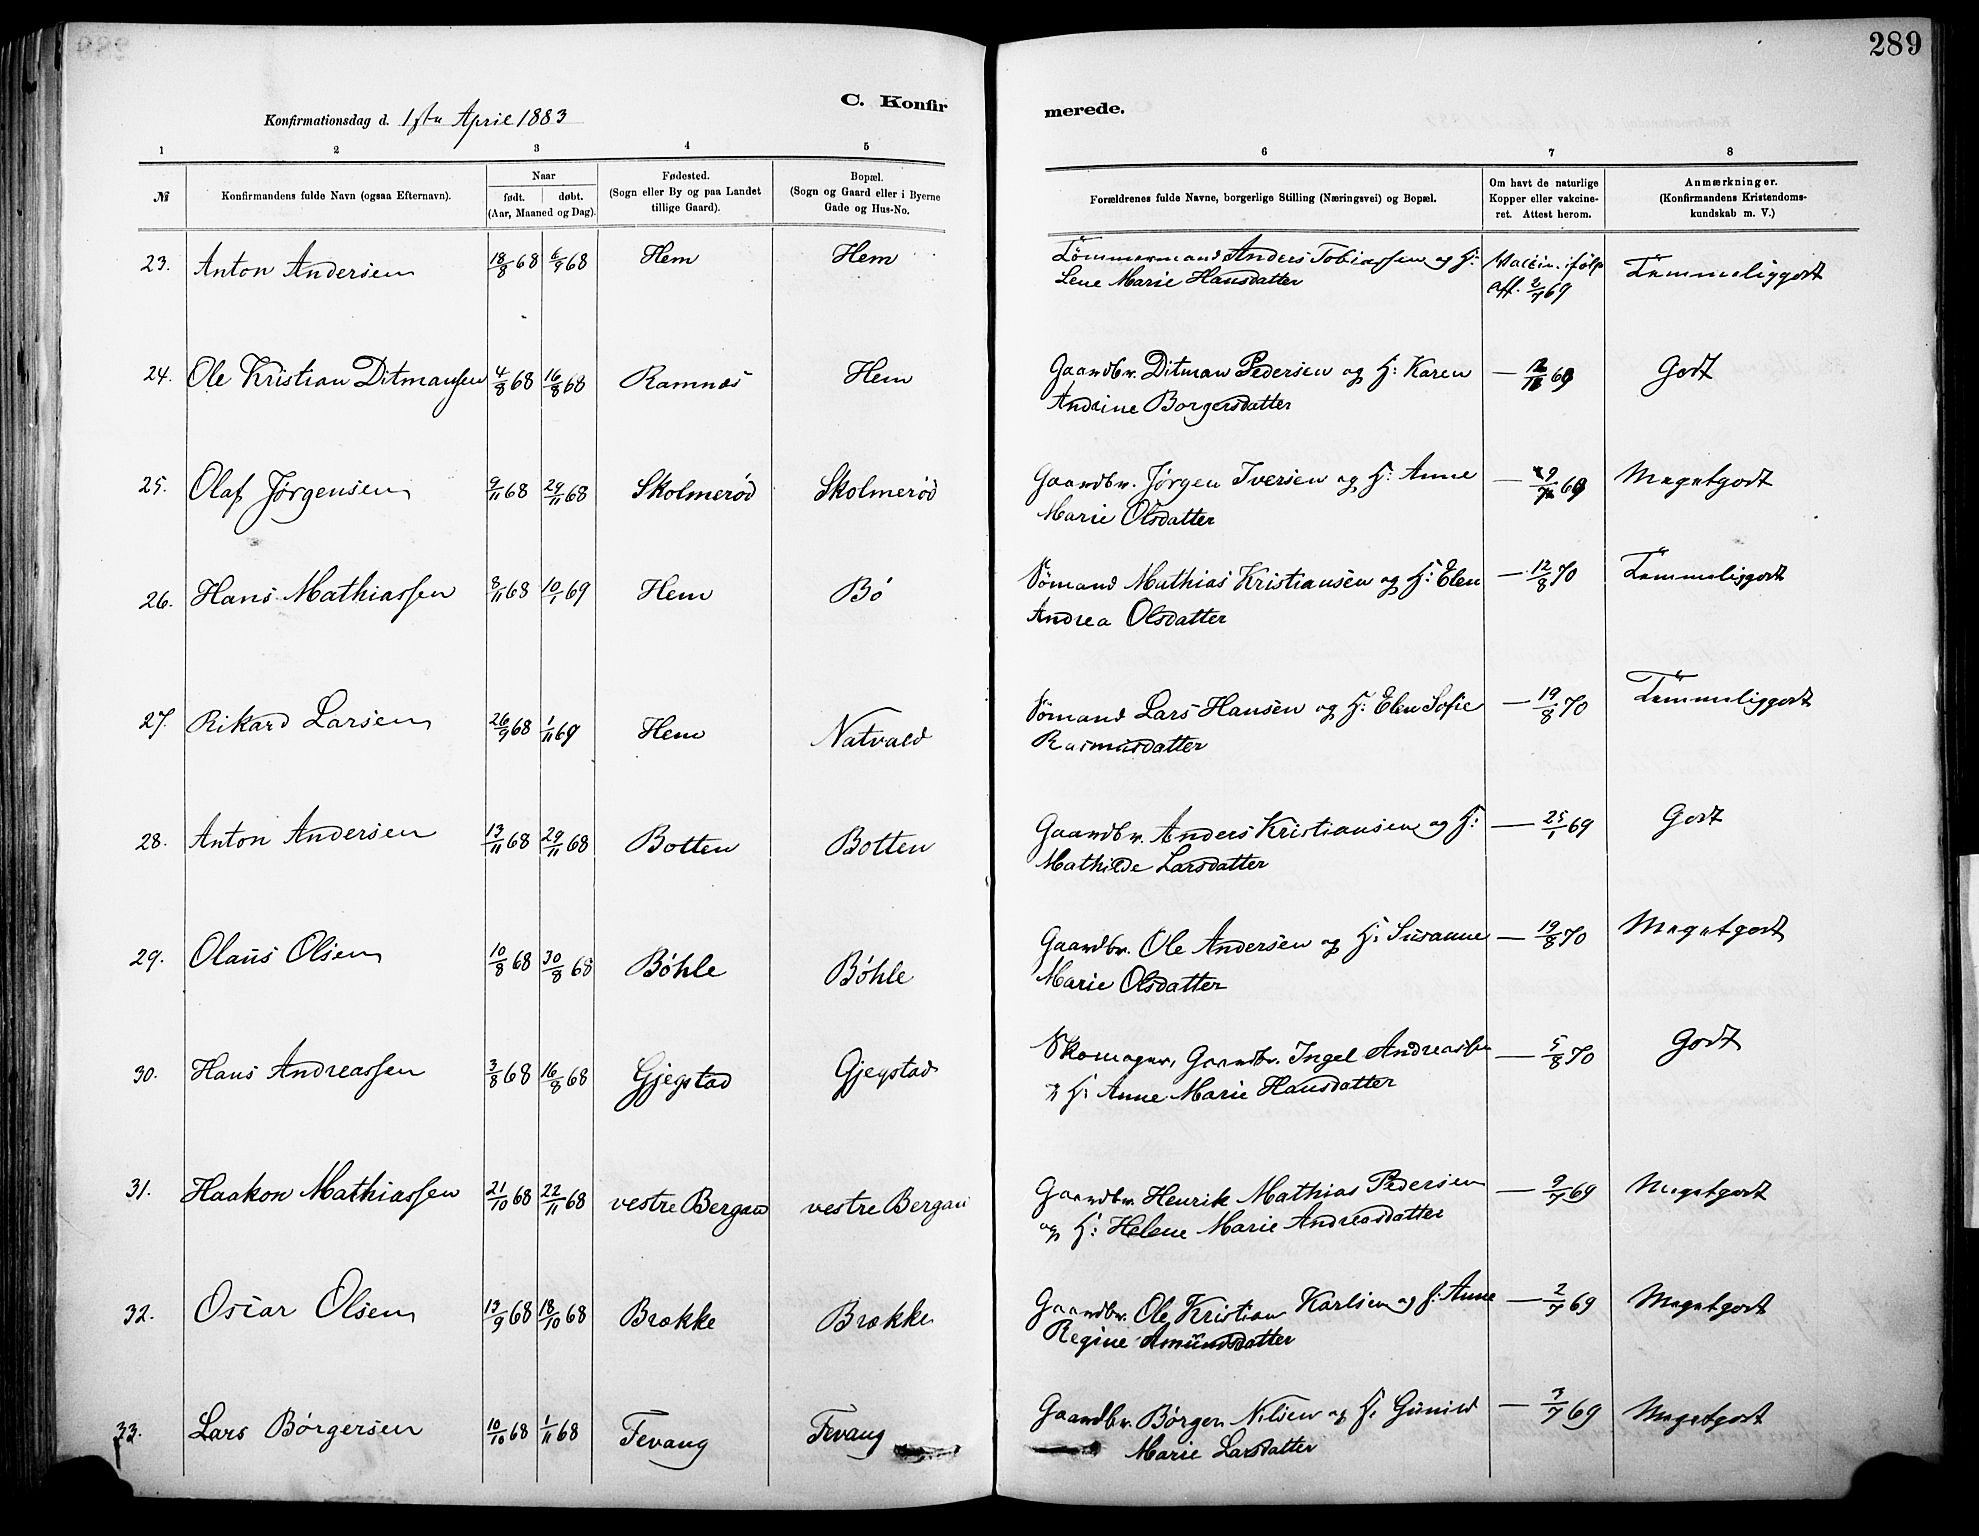 289
C. Konfir
merede.
Konfirmationsdag d. 1ste April 1883
1 2 3 4 5 6 7 8
№ Konfirmandens fulde Navn (ogsaa Efternavn). Naar født. døbt. (Aar, Maaned og Dag). Fødested. (Sogn eller By og paa Landet tillige Gaard). Bopæl. (Sogn og Gaard eller i Byerne Gade og Hus-No. Forældrenes fulde Navne, borgerlige Stilling (Næringsvei) og Bopæl. Om havt de naturlige Kopper eller vakcineret. Attest herom. Anmærkninger. (Konfirmandens Kristendomskundskab m. V.)
23. Anton Andersen 18/8 68 6/9 68 Hem Hem Tömmermand Anders Tobiassen og H: Vaccin. ifölg Temmeliggodt
Lene Marie Hansdatter att. 2/7 69
24. Ole Kristian Ditmansen 4/8 68 16/8 68 Ramnæs Hem Gaardbr. Ditman Pedersen og H: Karen — 69 Godt
Andrine Borgersdatter
25. Olaf Jørgensen 9/11 68 29/11 68 Skolmerød Skolmerød Gaardbr. Jørgen Iversen og H: Anne — 69 Megetgodt
Marie Olsdatter
26. Hans Mathiassen 8/11 68 10/1 69 Hem Bö Sömand Mathias Kristiansen og H: Elen — 12/8 70 Temmeliggodt
Andrea Olsdatter
27. Rikard Larsen 26/9 68 1/11 69 Hem Natvald Sömand Lars Hansen og H: Elen Sofie — 19/8 70 Temmeliggodt
Rasmusdatter
28. Anton Andersen 13/11 68 29/11 68 Botten Botten Gaardbr. Anders Kristiansen og H: — 25/1 69 Godt
Mathilde Larsdatter
29. Olaus Olsen 10/8 68 30/8 68 Böhle Böhle Gaardbr. Ole Andersen og H: Susanne — 19/8 70 Megetgodt
Marie Olsdatter
30. Hans Andreassen 3/8 68 16/8 68 Gjegstad Gjegstad Skomager, Gaardbr. Ingel Andreassen — 5/8 70 Godt
og H: Anne Marie Hansdatter
31. Haakon Mathiassen 21/10 68 22/11 68 vestre Bergan vestre Bergan Gaardbr. Henrik Mathias Pedersen — 2/7 69 Megetgodt
og H: Helene Marie Andreasdatter
32. Oscar Olsen 13/9 68 18/10 68 Brække Brække Gaardbr. Ole Kristian Karlsen og H: Anne — 2/7 69 Megetgodt
Regine Amundsdatter
33. Lars Börgersen 10/10 68 1/11 68 Fevang Fevang Gaardbr. Börger Nilsen og H: Gunild — 3/7 69 Megetgodt
Marie Larsdatter